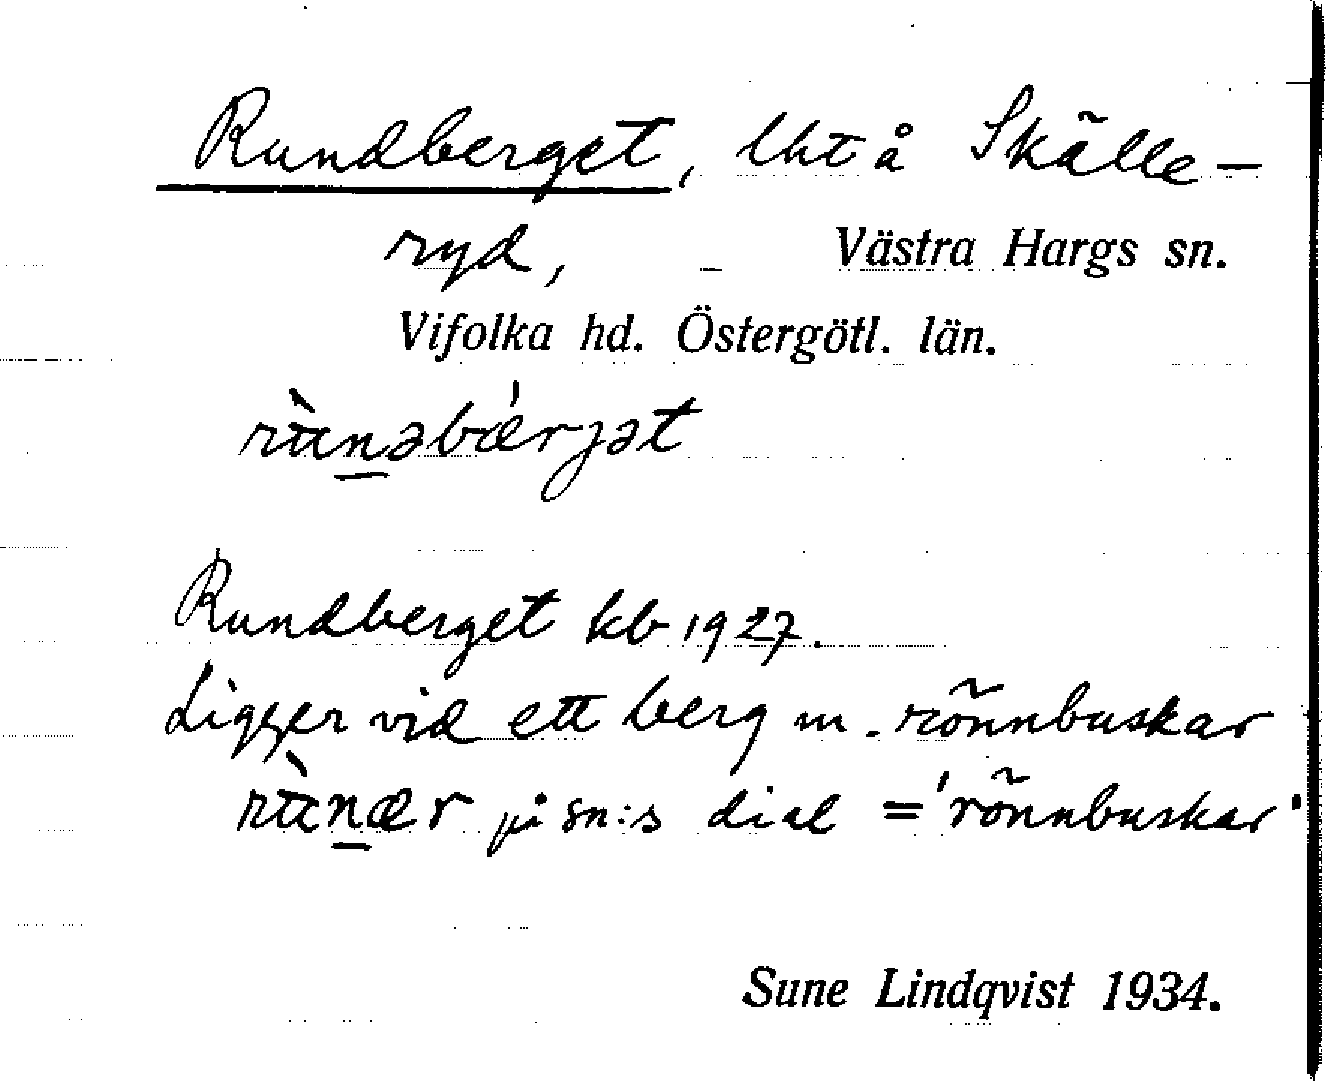 Rundberget, lht å Skälle-
ryd, Västra Hargs sn.
Vifolka hd. Östergötl. län.
rùn̲əbǽrjət
Rundberget kb 1927.
Ligger vid ett berg m. rönnbuskar
rùn̲ær på sn:s dial = 'rönnbuskar'
Sune Lindqvist 1934.